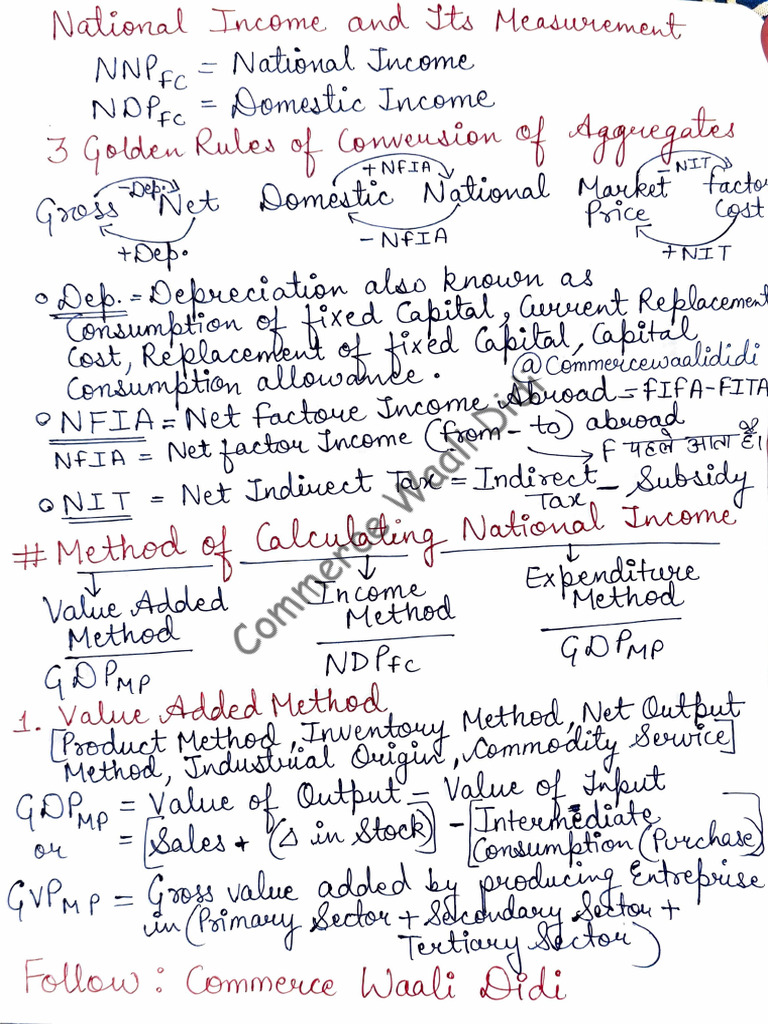 National Income and Its Measurement
NNPFC = National Income
NDPFC = Domestic Income
3 Golden Rules of Conversion of Aggregates
-Dep. +NFIA -NIT
Gross Net Domestic National Market Price factor Cost
+Dep. -NFIA +NIT
Dep. = Depreciation also known as
Consumption of fixed Capital, Current Replacement
Cost, Replacement of fixed Capital, Capital
Consumption allowance. @Commercewaalididi
NFIA = Net factore Income Abroad = FIFA-FITA
NFIA = Net factor Income (from - to) abroad
F पहले आता है।
NIT = Net Indirect Tax = Indirect Tax - Subsidy
# Method of Calculating National Income
Value Added Method Income Method Expenditure Method
GDPMP NDPFC GDPMP
1. Value Added Method
[Product Method, Inventory Method, Net Output
Method, Industrial Origin, Commodity Service]
GDPMP = Value of Output - Value of Input
or = [Sales + (Δ in Stock)] - [Intermediate Consumption (Purchase)]
GVPMP = Gross value added by producing Entreprise
in (Primary Sector + Secondary Sector +
Tertiary Sector)
Follow: Commerce Waali Didi
Commerce Waali Didi